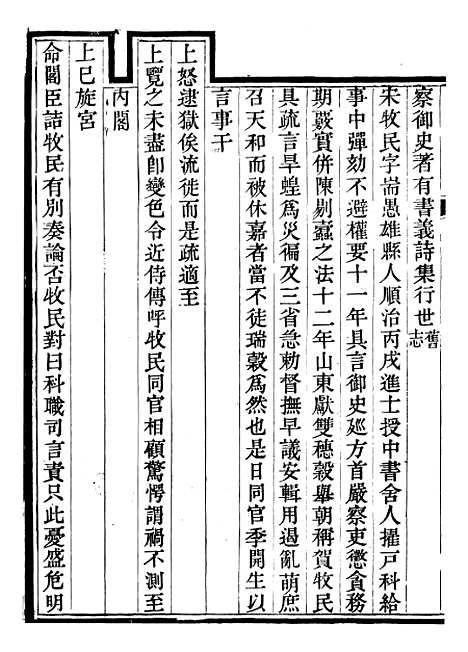 察御史著有書義詩集行世舊志
宋牧民字耑愚雄縣人順治丙戌進士授中書舍人擢戸科給
事中彈劾不避權要十一年具言御史廵方首嚴察吏懲貪務
期覈實併陳剔蠧之法十二年山東獻雙穗穀舉朝稱賀牧民
具疏言旱蝗爲災徧及三省急勅督撫早議安輯用遏亂萌庶
召天和而被休嘉者當不徒瑞穀爲然也是日同官季開生以
言事干
上怒逮獄俟流徙而是疏適至
上覽之未盡卽變色令近侍傳呼牧民同官相顧驚愕謂禍不測至
内閣
上已旋宮
命閣臣詰牧民有别奏論否牧民對曰科職司言責只此憂盛危明